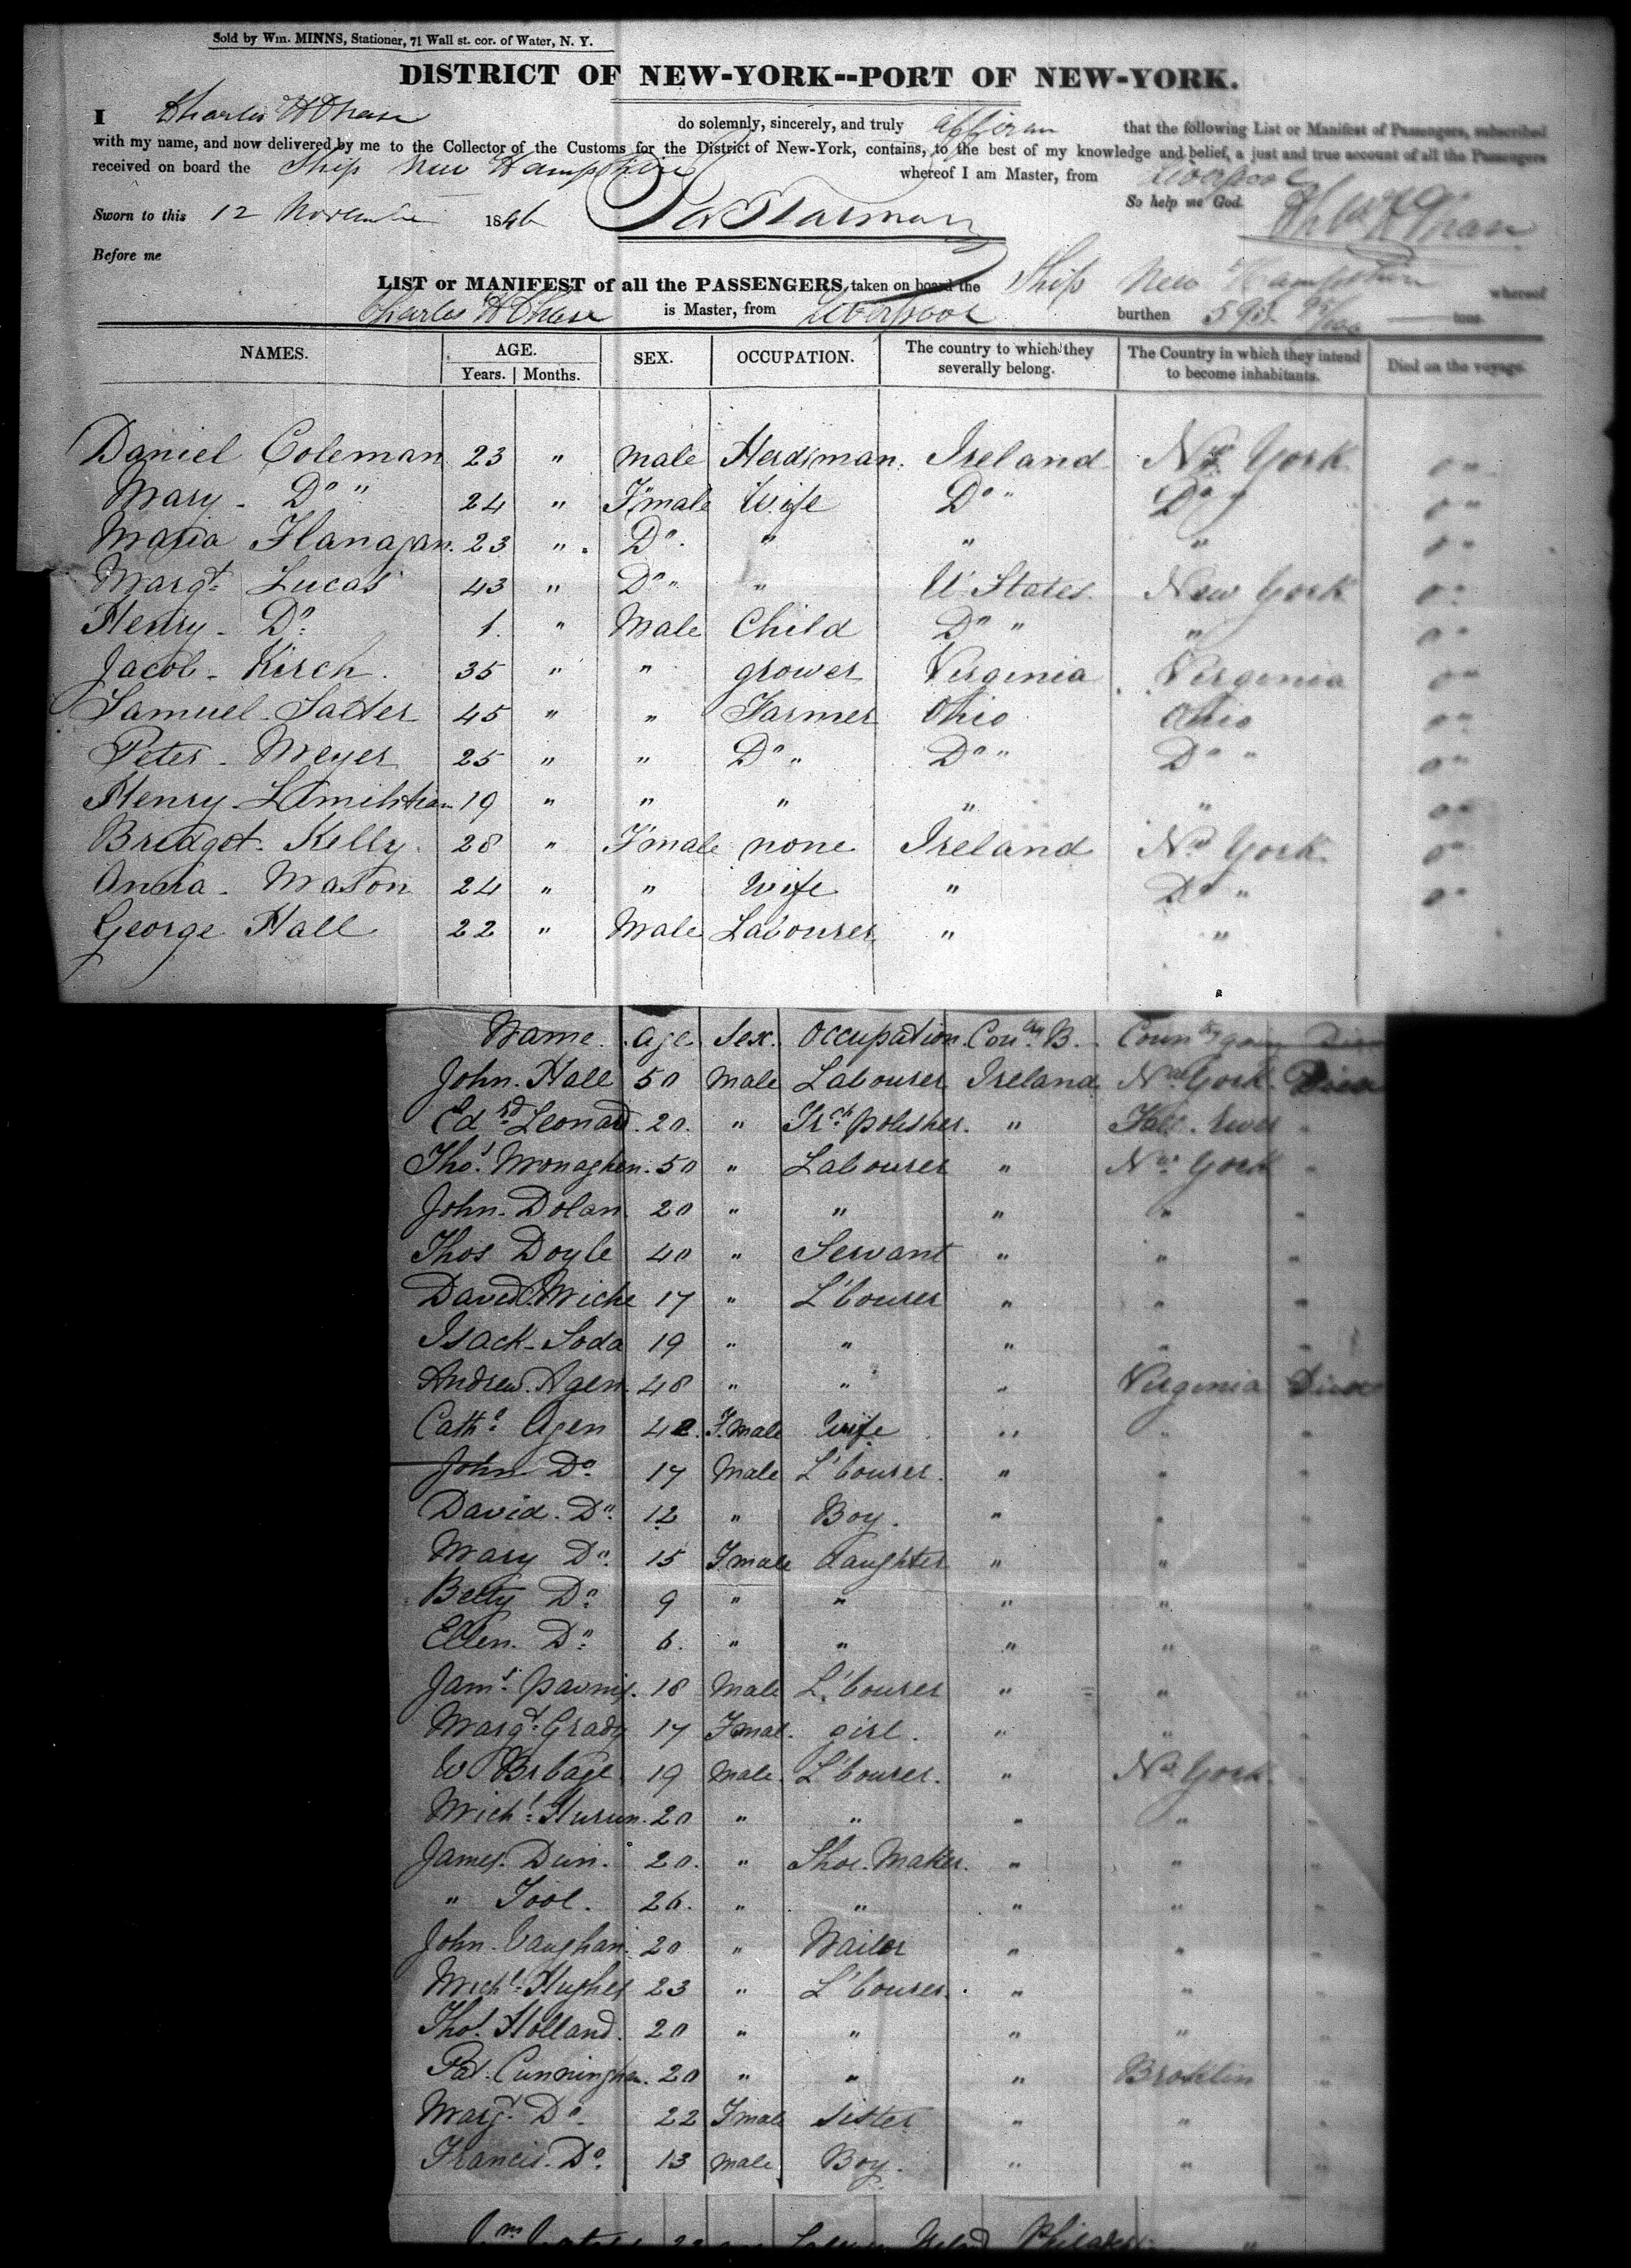 Sold by Wm. MINNS, Stationer, 71 Wall st. cor. of Water, N. Y.
DISTRICT OF NEW-YORK--PORT OF NEW-YORK.
I Charles H Chase do solemnly, sincerely, and truly affirm that the following List or Manifest of Passengers, subscribed
with my name, and now delivered by me to the Collector of the Customs for the District of New-York, contains, to the best of my knowledge and belief, a just and true account of all the Passengers
received on board the Ship New Hampshire whereof I am Master, from Liverpool
So help me God.
Sworn to this 12 November 1846
Before me
LIST or MANIFEST of all the PASSENGERS taken on board the Ship New Hampshire whereof
Charles H Chase is Master, from Liverpool burthen tons
NAMES. AGE. SEX. OCCUPATION. The country to which they severally belong. The Country in which they intend to become inhabitants. Died on the voyage.
Years. Months.
Daniel Coleman 23 " Male Herdsman. Ireland Nw York o"
Mary - Do " 24 " F'male Wife Do " Do " o"
Maria Flanagan. 23 " Do. " " " o"
Margt. Lucas 43 " Do " " U States. New York o"
Henry - Do. 1. " Male Child Do " " o"
Jacob - Kirch. 35 " " grower Virginia Virginia o"
Samuel - Salter 45 " " Farmer Ohio Ohio o"
Peter - Meyer 25 " " Do " Do " Do " o"
Henry - 19 " " " " " o"
Bridget - Kelly. 28 " F'male none Ireland Nw York. o"
Anna - Mason 24 " " Wife " Do " o"
George Hall 22 " Male Labourer " "
Name. Age Sex. Occupation. Couny B. County going
John. Hall 50 Male Labourer Ireland Nw York.
Edrd Leonard. 20. " Frch polisher. " Fall River "
Thos. Monaghen. 50 " Labourer " Nw York "
John. Dolan. 20 " " " " "
Thos Doyle 40 " Servant " " "
David Miche 17 " L'bourer " " "
Isack - Soda 19 " " " " "
Andrew. Agen. 48 " " " Virginia
Cathe. Agen 42. F.male Wife " " "
John Do. 17 Male L'bourer. " " "
David. Do. 12 " Boy. " " "
Mary Do. 15 F.male daughter " " "
Betty Do. 9 " " " " "
Ellen. Do. 6. " " " " "
Jams. 18 Male L'bourer " " "
Margt. Grady 17 F.mal. girl. " " "
W Brbage. 19 male. L'bourer. " Nw York. "
Michl. 20 " " " " "
James. Dun. 20. " Shoe. Maker. " " "
" Tool. 26. " " " " "
John. Vaughan. 20 " Nailer " " "
Michl. Hughes 23 " L'bourer. " " "
Thos. Holland. 20 " " " " "
Pat. Cunningham. 20 " " " Broklin "
Margt. Do. 22 F.male sister " " "
Francis. Do. 13 male. Boy. " " "